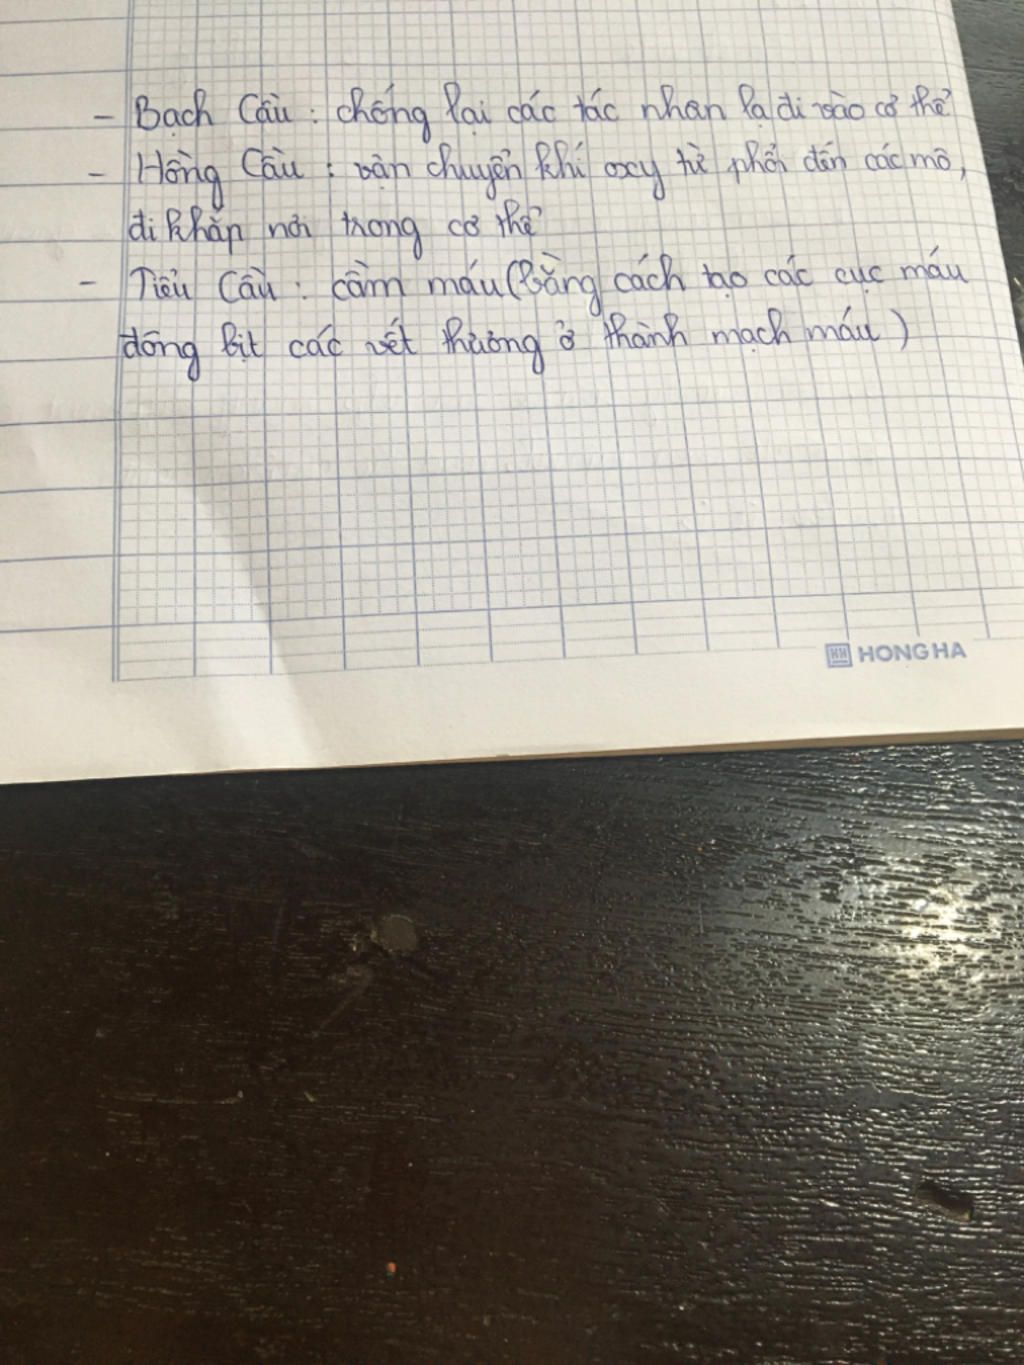 - Bạch Cầu : chống lại các tác nhan lạ đi vào cơ thể
- Hồng Cầu : vận chuyển khí oxy từ phổi đến các mô,
đi khắp nơi trong cơ thể
- Tiểu Cầu : cầm máu (bằng cách tạo các cục máu
đông bịt các vết thương ở thành mạch máu)
HH HONG HA